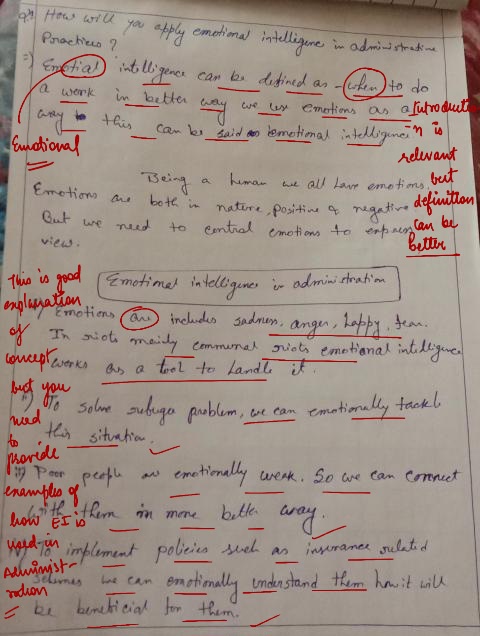 Q3) How will you apply emotional intelligence in administrative
Practices?
⇒) Emotial intelligence can be defined as - when to do
a work in better way we use emotions as a
way to this can be said as emotional intelligence.
Emotional
Introduction is
relevant
but
definition
can be
better
Being a human we all have emotions.
Emotions are both in nature, positive & negative
But we need to control emotions to express
view.
Emotional intelligence in administration
i) Emotions are includes sadness, anger, happy, fear.
In riots mainly communal riots emotional intelligence
works as a tool to handle it.
ii) To solve refugee problem, we can emotionally tackle
this situation.
iii) Poor people are emotionally weak. So we can connect
with them in more better way.
iv) To implement policies such as insurance related
schemes we can emotionally understand them how it will
be beneficial for them.
This is good
explanation
of
concept
but you
need
to
provide
examples of
how EI is
used in
Administ-
ration